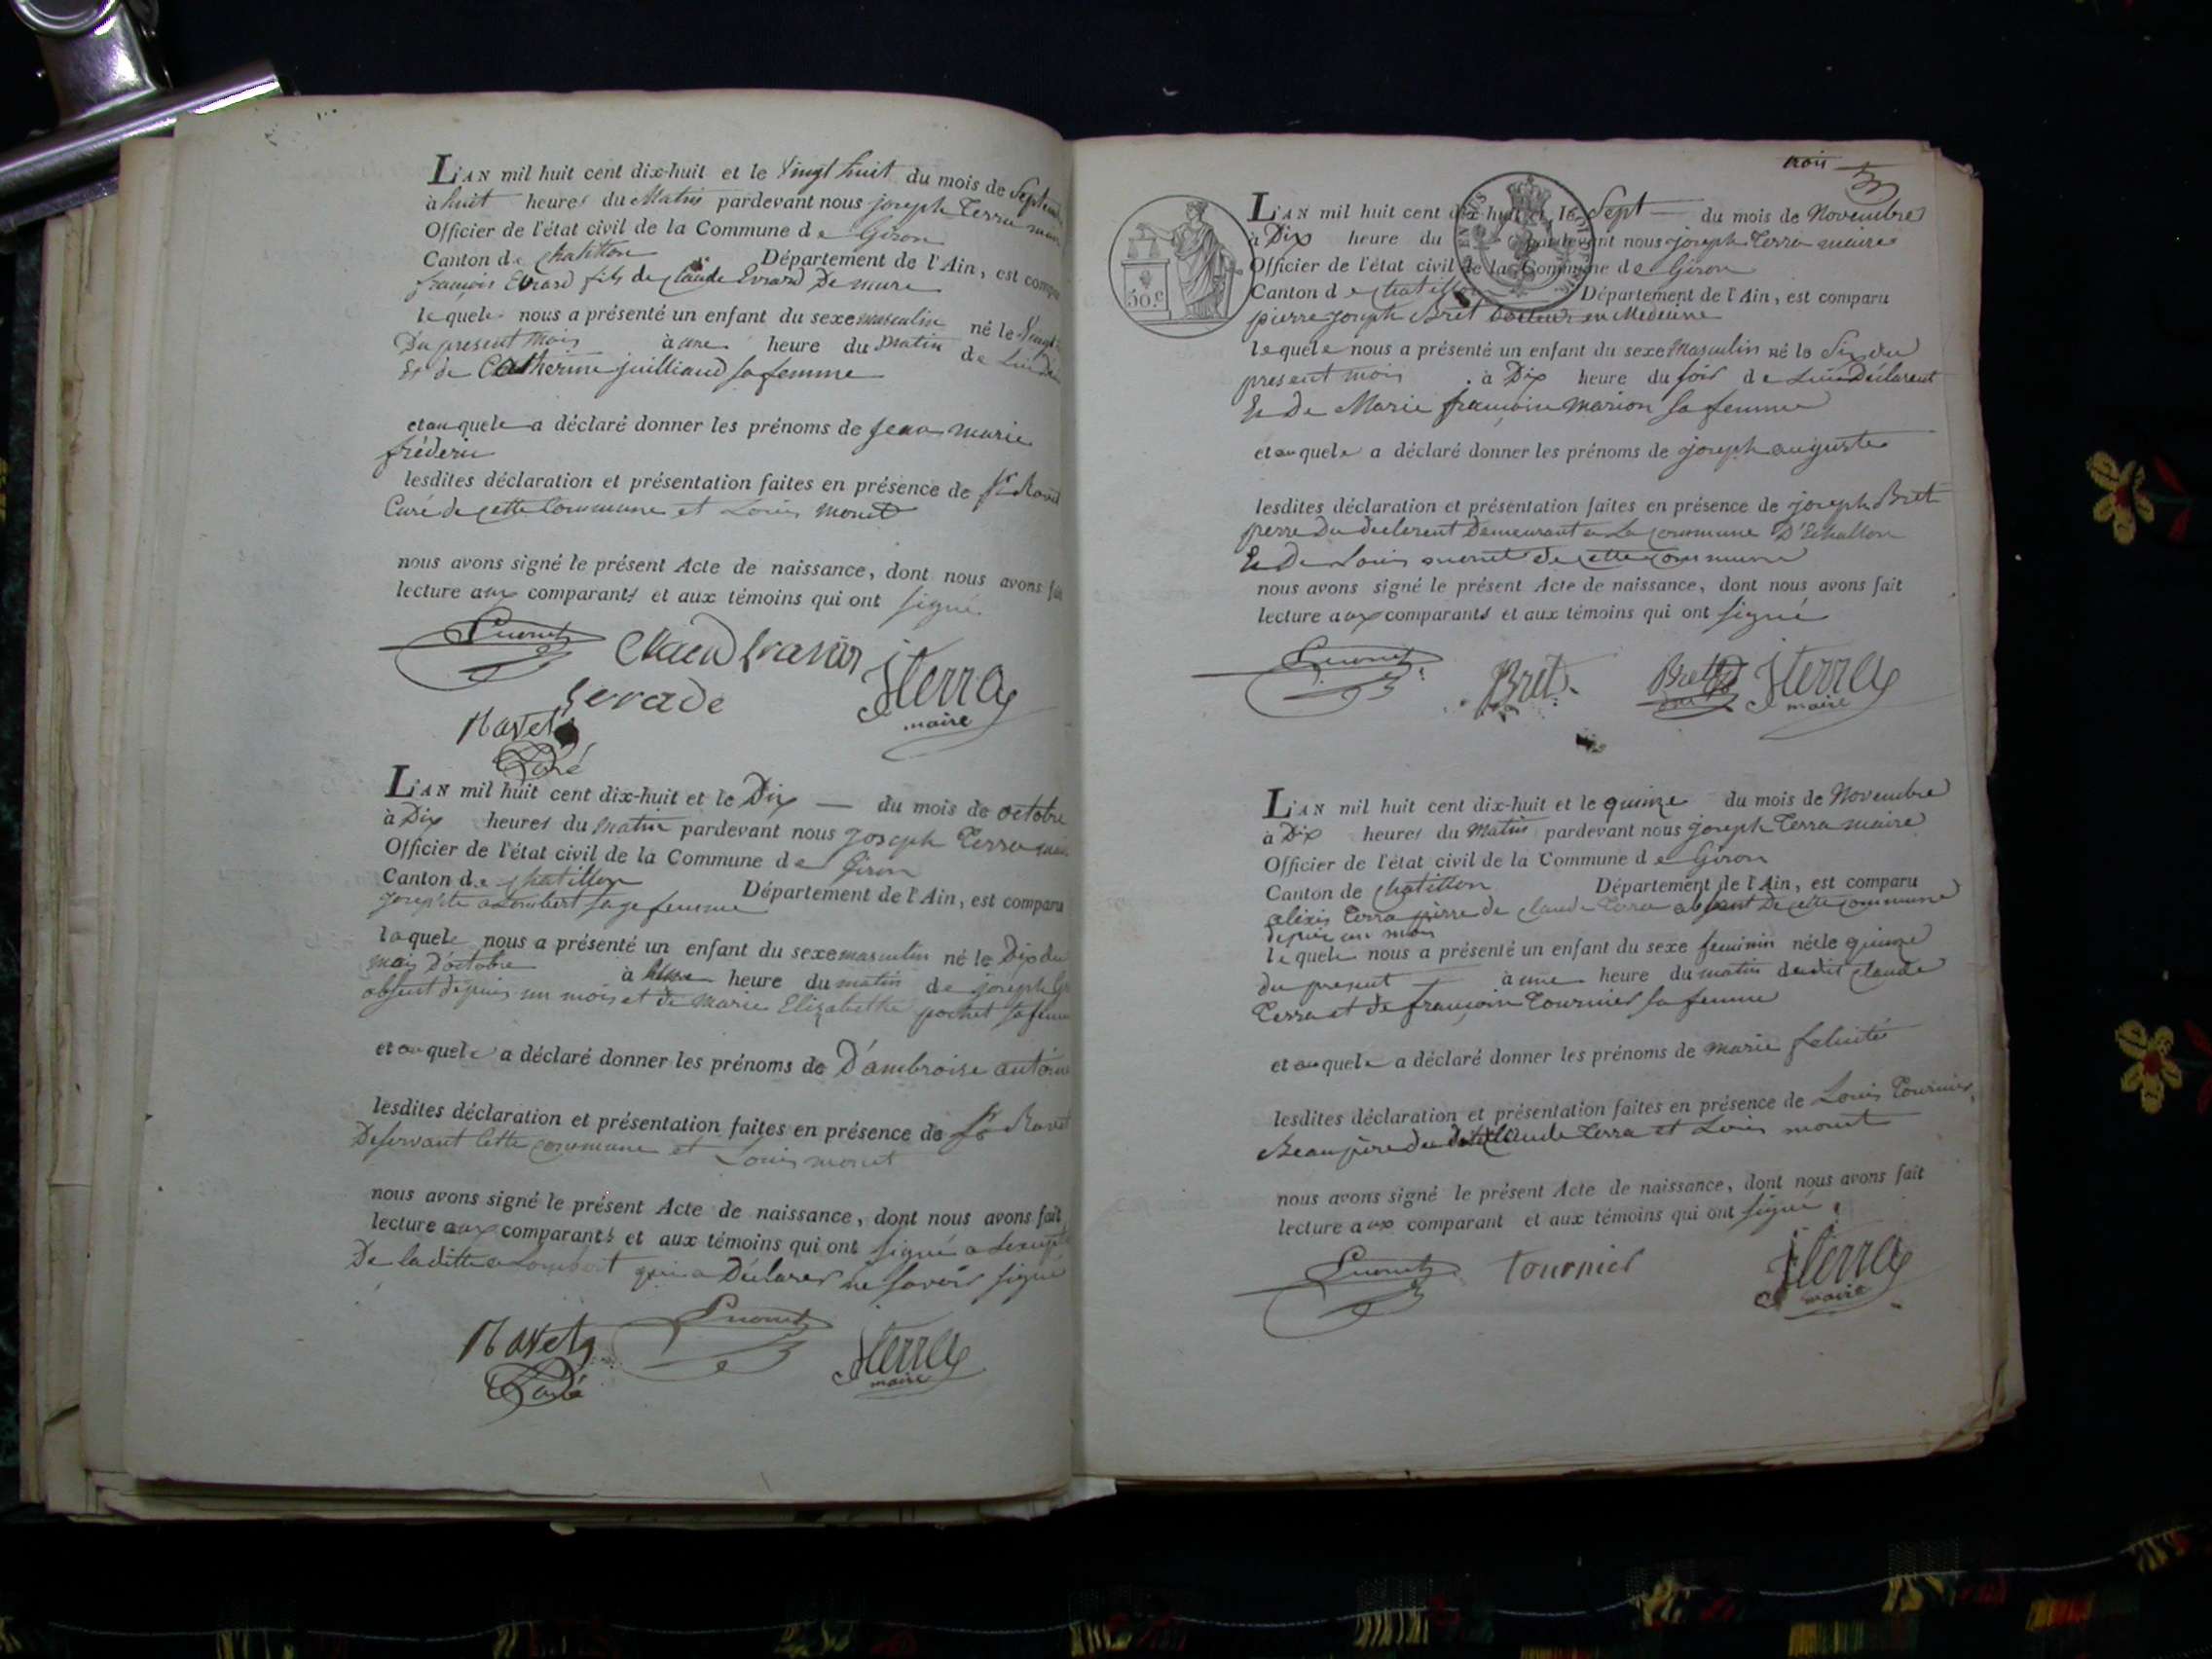 L'AN mil huit cent dix-huit et le Vingt huit du mois de Septemb
à huit heures du Matin pardevant nous joseph Terra mair
Officier de l'état civil de la Commune de Giron
Canton de Chatillon Département de l'Ain, est compa
françois Evrard fils de Claude Evrard De mure
lequele nous a présenté un enfant du sexe masculin né le Vingt
Du present Mois à une heure du Matin de Lui De
Et de Catherine juilliand sa femme
et au quele a déclaré donner les prénoms de jean marie
fréderic
lesdites déclaration et présentation faites en présence de fs Ravet
Curé de cette Commune et Louis monet
nous avons signé le présent Acte de naissance, dont nous avons fait
lecture aux comparants et aux témoins qui ont signé
Lmonet
Jterra
maire
Ravet
Curé
L'AN mil huit cent dix-huit et le Dix — du mois de octobre
à Dix heures du matin pardevant nous Joseph Terra mai
Officier de l'état civil de la Commune de Giron
Canton de Chatillon Département de l'Ain, est comparu
josephte alombert sage femme
laquele nous a présenté un enfant du sexe masculin né le Dix du
mois D'octobre à heure du matin de joseph
absent depuis un mois et de Marie Elizabethe pochet sa femme
et au quele a déclaré donner les prénoms de D'ambroise antoine
lesdites déclaration et présentation faites en présence de fs Ravet
Deservant Cette commune et Louis monet
nous avons signé le présent Acte de naissance, dont nous avons fait
lecture aux comparants et aux témoins qui ont signé a Lexcepte
De laditte alombert qui a Déclarer ne savoir signé
Ravet Lmonet
Curé
Jterra
maire
trois
50 c
L'AN mil huit cent dix-huit et le Sept — du mois de Novembre
à Dix heure du pardevant nous joseph Terra maire
Officier de l'état civil de la Commune de Giron
Canton de Chatillon Département de l'Ain, est comparu
pierre joseph Bret Docteur en Medecine
lequele nous a présenté un enfant du sexe Masculin né le Six du
present mois à Dix heure du soir de Lui Déclarent
Et De Marie françoise marion sa femme
et au quele a déclaré donner les prénoms de joseph auguste
lesdites déclaration et présentation faites en présence de joseph Bret
perre Du declerent Demeurant en La commune D'Echallon
Et De Louis monet de cette commune
nous avons signé le présent Acte de naissance, dont nous avons fait
lecture aux comparants et aux témoins qui ont signé
Lmonet Bret Bret Jterra
maire
L'AN mil huit cent dix-huit et le quinze du mois de Novembre
à Dix heures du Matin pardevant nous joseph Terra maire
Officier de l'état civil de la Commune de Giron
Canton de Chatillon Département de l'Ain, est comparu
alexis Terra pierre de claude Terra absent De cette commune
depuis un mois
lequele nous a présenté un enfant du sexe feminin née le quinze
du present à une heure du matin dudit claude
Terra et de françoise Tournier sa femme
et au quele a déclaré donner les prénoms de marie felicité
lesdites déclaration et présentation faites en présence de Louis Tournier
Beaupère du dit Claude Terra et Louis monet
nous avons signé le présent Acte de naissance, dont nous avons fait
lecture aux comparant et aux témoins qui ont signé
Lmonet tournier Jterra
maire